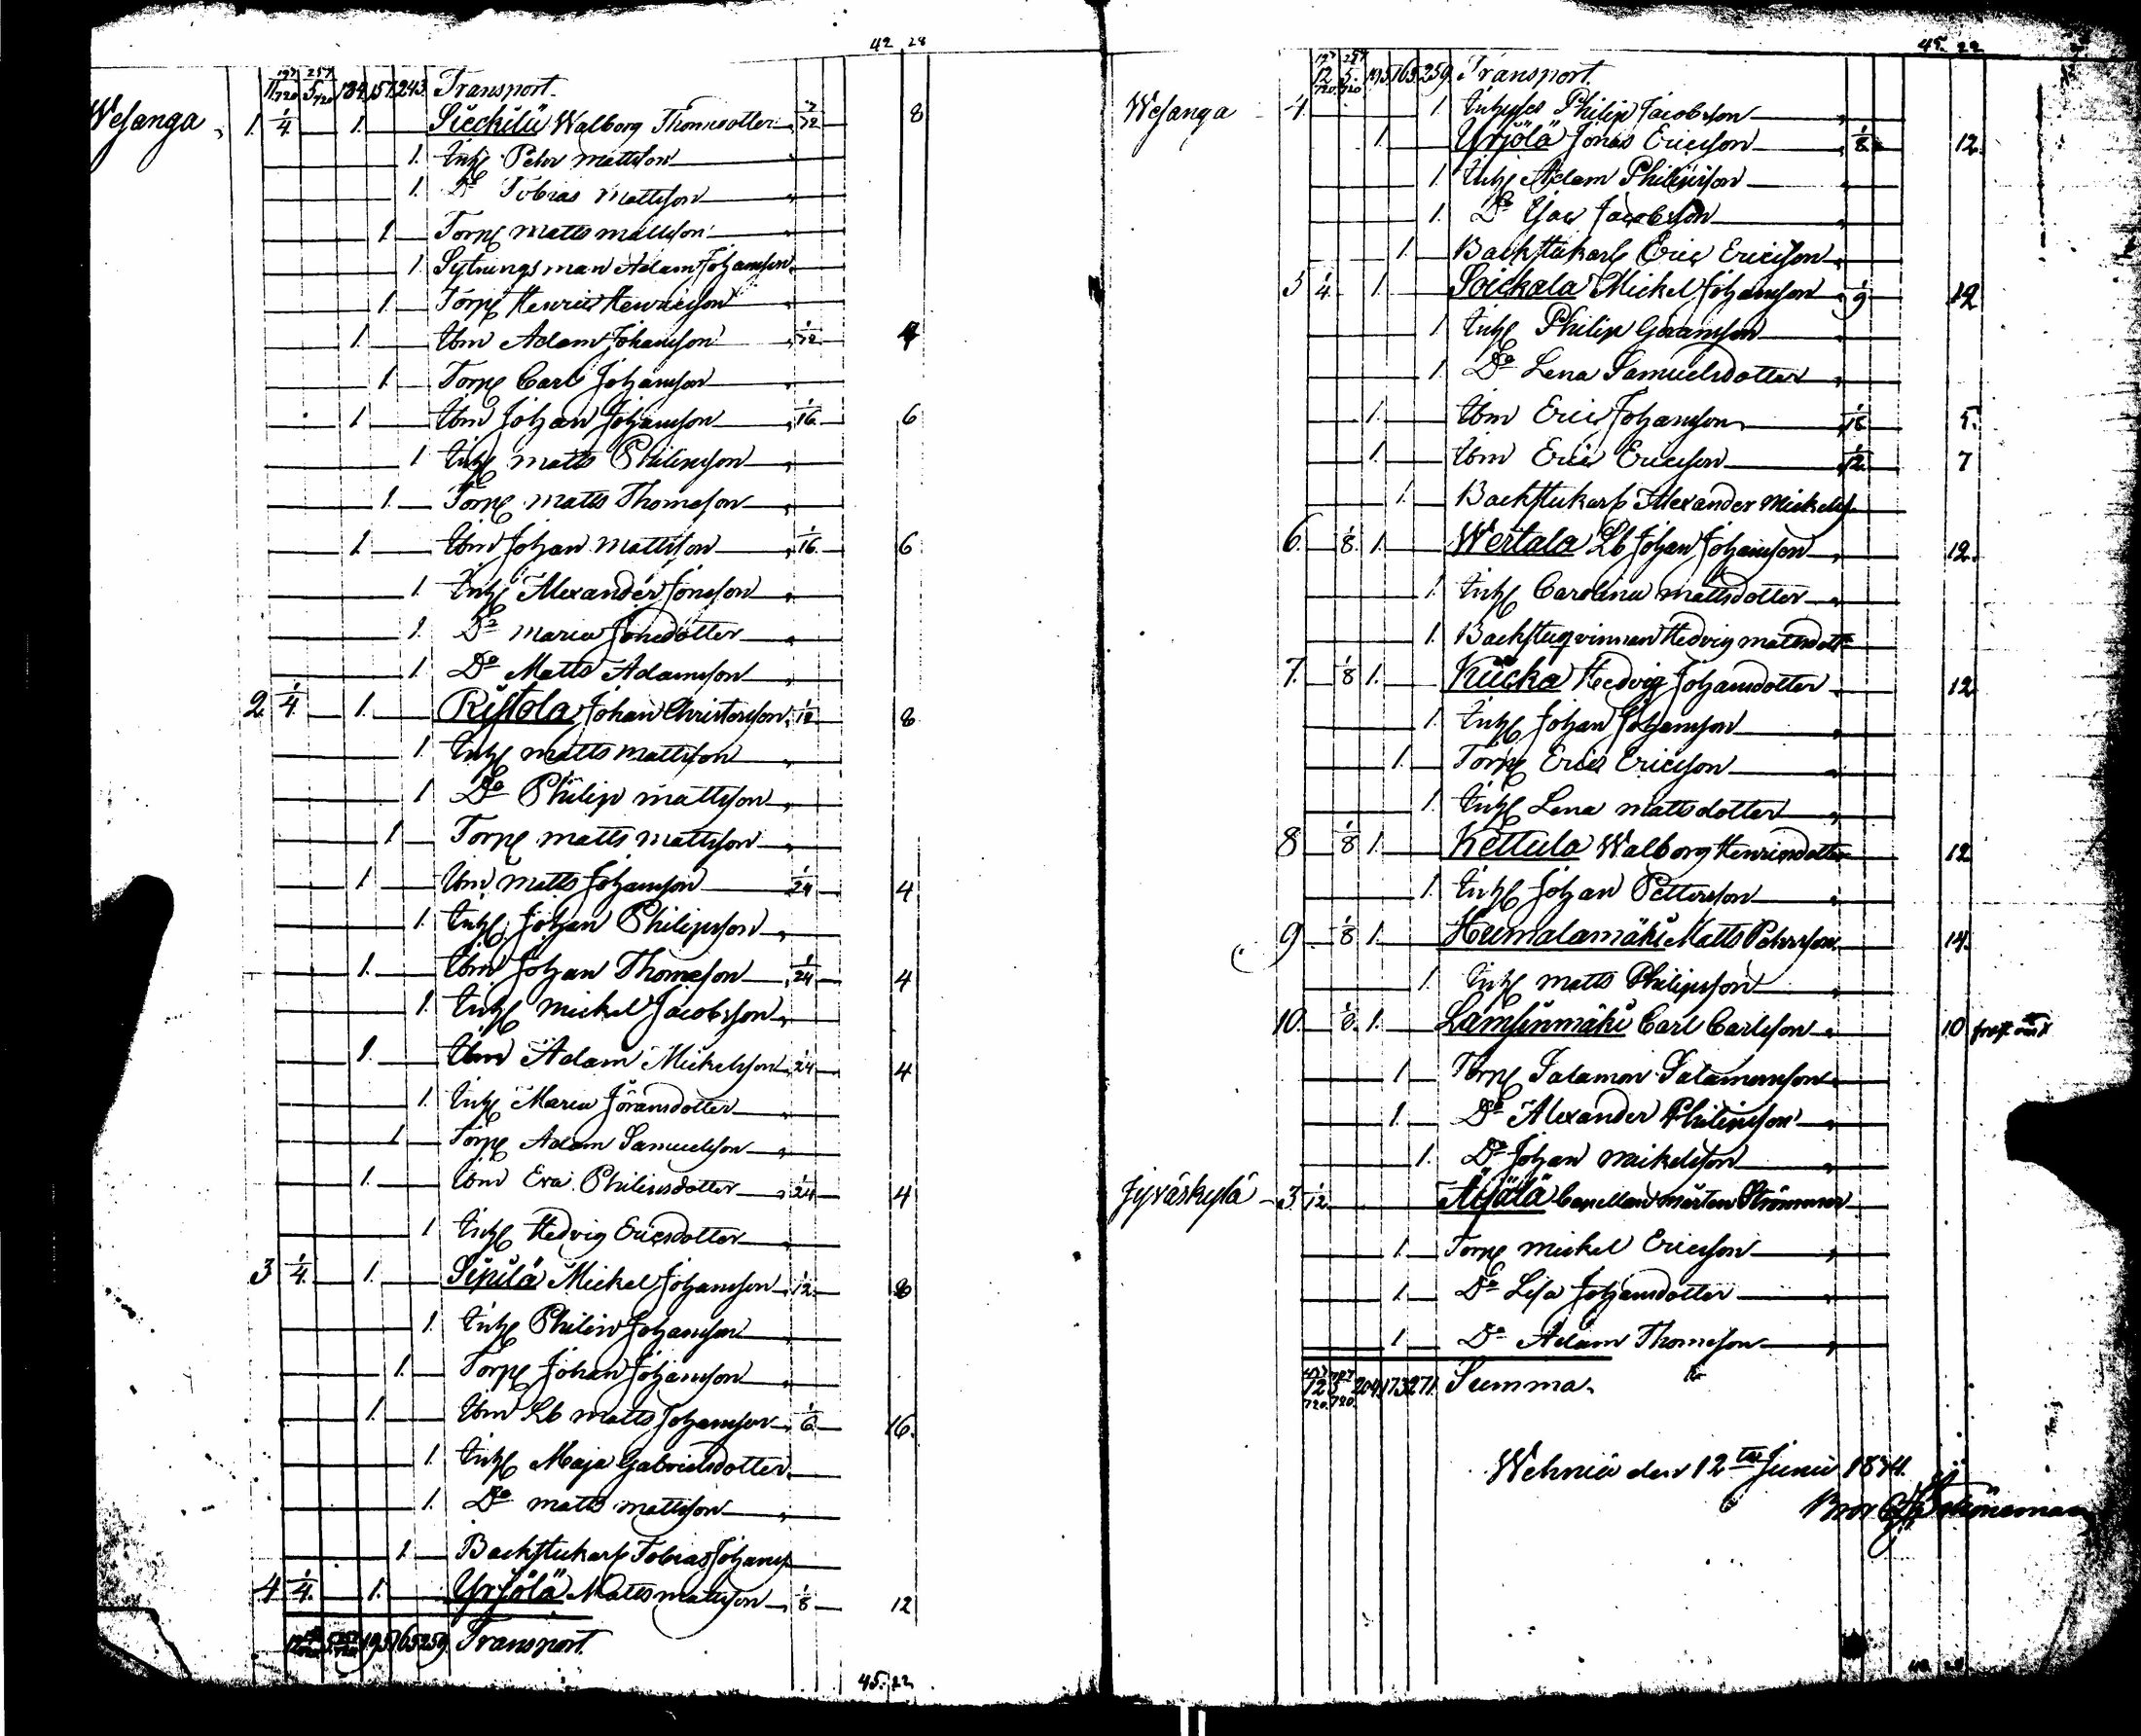 42 28
Transport.
Wesanga 1. 1/4 1. Sieckilü Walborg Thomsdotter 1/12 8
1. Inhs Pehr Mattsson
1. Do Tobias Mattsson
1. Torp Matts Mattsson
1. Sytningsman Adam Johansson
1. Torp Henric Henricsson
1. Ibm Adam Johansson 1/12
1. Torp Carl Johansson
1 Ibm Johan Johansson 1/16 6
1 Inhs Matts Philipsson
1. Torp Matts Thomsson
1. Ibm Johan Mattsson 1/16 6
1. Inhs Alexander Jonsson
1. Do Maria Jonsdotter
1. Do Matts Adamsson
2 1/4 1. Ristola Johan Christersson 1/12 8
1 Inhs Matts Mattsson
1 Do Philip Mattsson
1 Torp Matts Mattsson
1. Ibm Matts Johansson 1/24 4
1. Inhs Johan Philipsson
1. Ibm Johan Thomsson 1/24 4
1. Inhs Mickel Jacobsson
1. Ibm Adam Mickelsson 1/24 4
1. Inhs Maria Jöransdotter
1 Torp Adam Samuelsson
1. Ibm Eva Philipsdotter 1/24 4
1 Inhs Hedvig Ericsdotter
3 1/4 1. Sipilä Mickel Johansson 1/12 8
1. Inhs Philip Johansson
1. Torp Johan Johansson
1. Ibm Lb Matts Johansson 1/6 16.
1 Inhs Maja Gabrielsdotter
1. Do Matts Mattsson
1 Backstukarl Tobias Johans
4 1/4 1. Yrjölä Matts Mattsson 1/8 12
195 165 259 Transport.
45. 22
45. 22
195. 165. 259. Transport.
Wesanga 4. 1 Inhyses Philip Jacobsson
1. Yrjölä Jonas Ericsson 1/8 12.
1. Inhs Adam Philipsson
1. Do Isac Jacobsson
1. Backstukarl Eric Ericsson
5 1/4 1. Soickala Mickel Johansson 1/9 12
1 Inhs Philip Göransson
1. Do Lena Samuelsdotter
1. Ibm Eric Johansson 1/18 5.
1. Ibm Eric Ericsson 1/12 7
1. Backstukarl Alexander Mickels
6. 1/8 1. Wertala Lb Johan Johansson 12.
1. Inhs Carolina Mattsdotter
1. Backstuqvinnan Hedvig Mattsdott
7. 1/8 1. Kiicka Hedvig Johansdotter 12
1. Inhs Johan Johansson
1. Torp Eric Ericsson
1. Inhs Lena Mattsdotter
8 1/8 1. Kettula Walborg Henricsdotter 12
1. Inhs Johan Pettersson
9 1/8 1. Heimalamäki Matts Pehrsson 14.
1. Inhs Matts Philipsson
10. 1/8 1. Lamsinmäki Carl Carlsson 10
1 Torp Salamon Salamonsson
1. Do Alexander Philipsson
1. Do Johan Mickelsson
Jyväskylä 3 1/12 Äijälä Capellan Mårten Strömmer
1. Torp Mickel Ericsson
1. Do Lisa Johansdotter
1. Do Adam Thomsson
204 173 271. Summa.
Wehniä den 12te Junii 1841.